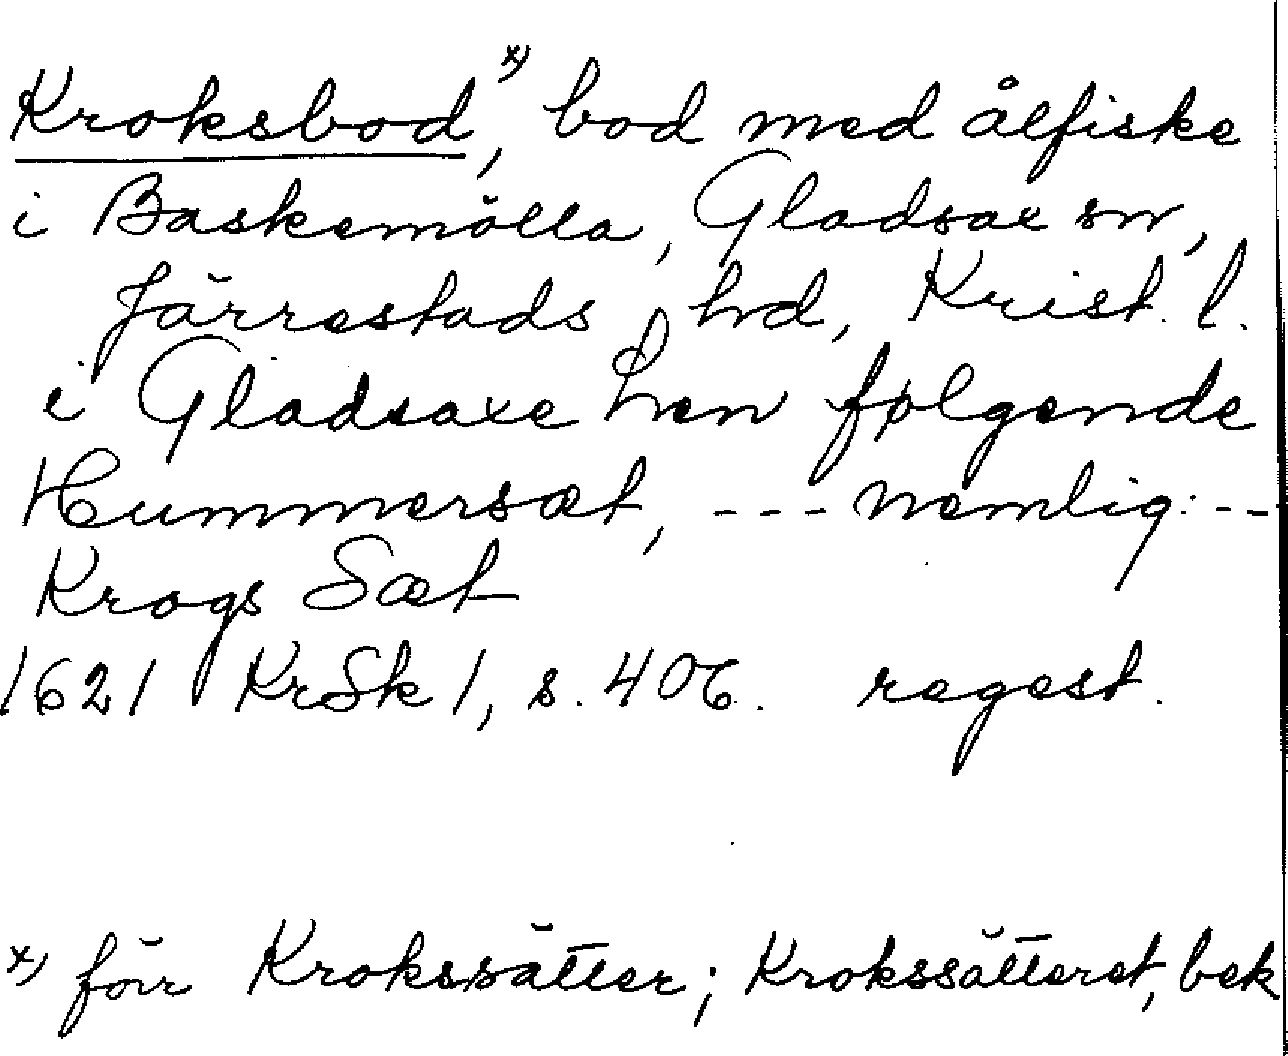 Kroksbod,ˣ⁾ bod med ålfiske
i Baskemölla, Gladsax sn,
Järrestads hd, Krist. l.
i Gladsaxe Len følgende
Hummersæt, --- nemlig: --
Krogs Sæt
1621 KrSk 1, s. 406. regest.
ˣ⁾ förr Krokssätter; Krokssätteret, bek